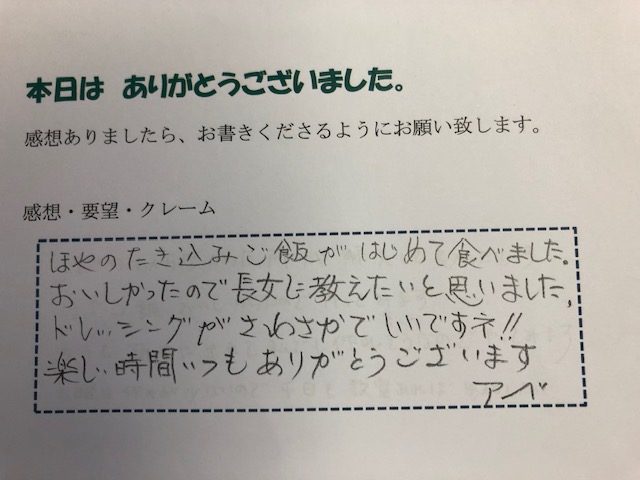 本日は ありがとうございました。
感想ありましたら、お書きくださるようにお願い致します。
感想・要望・クレーム
ほやのたき込みご飯が はじめて食べました。
おいしかったので長女に教えたいと思いました,
ドレッシングがさわさかでしいですネ!!
楽しい時間いつもありがとうございます
アベ